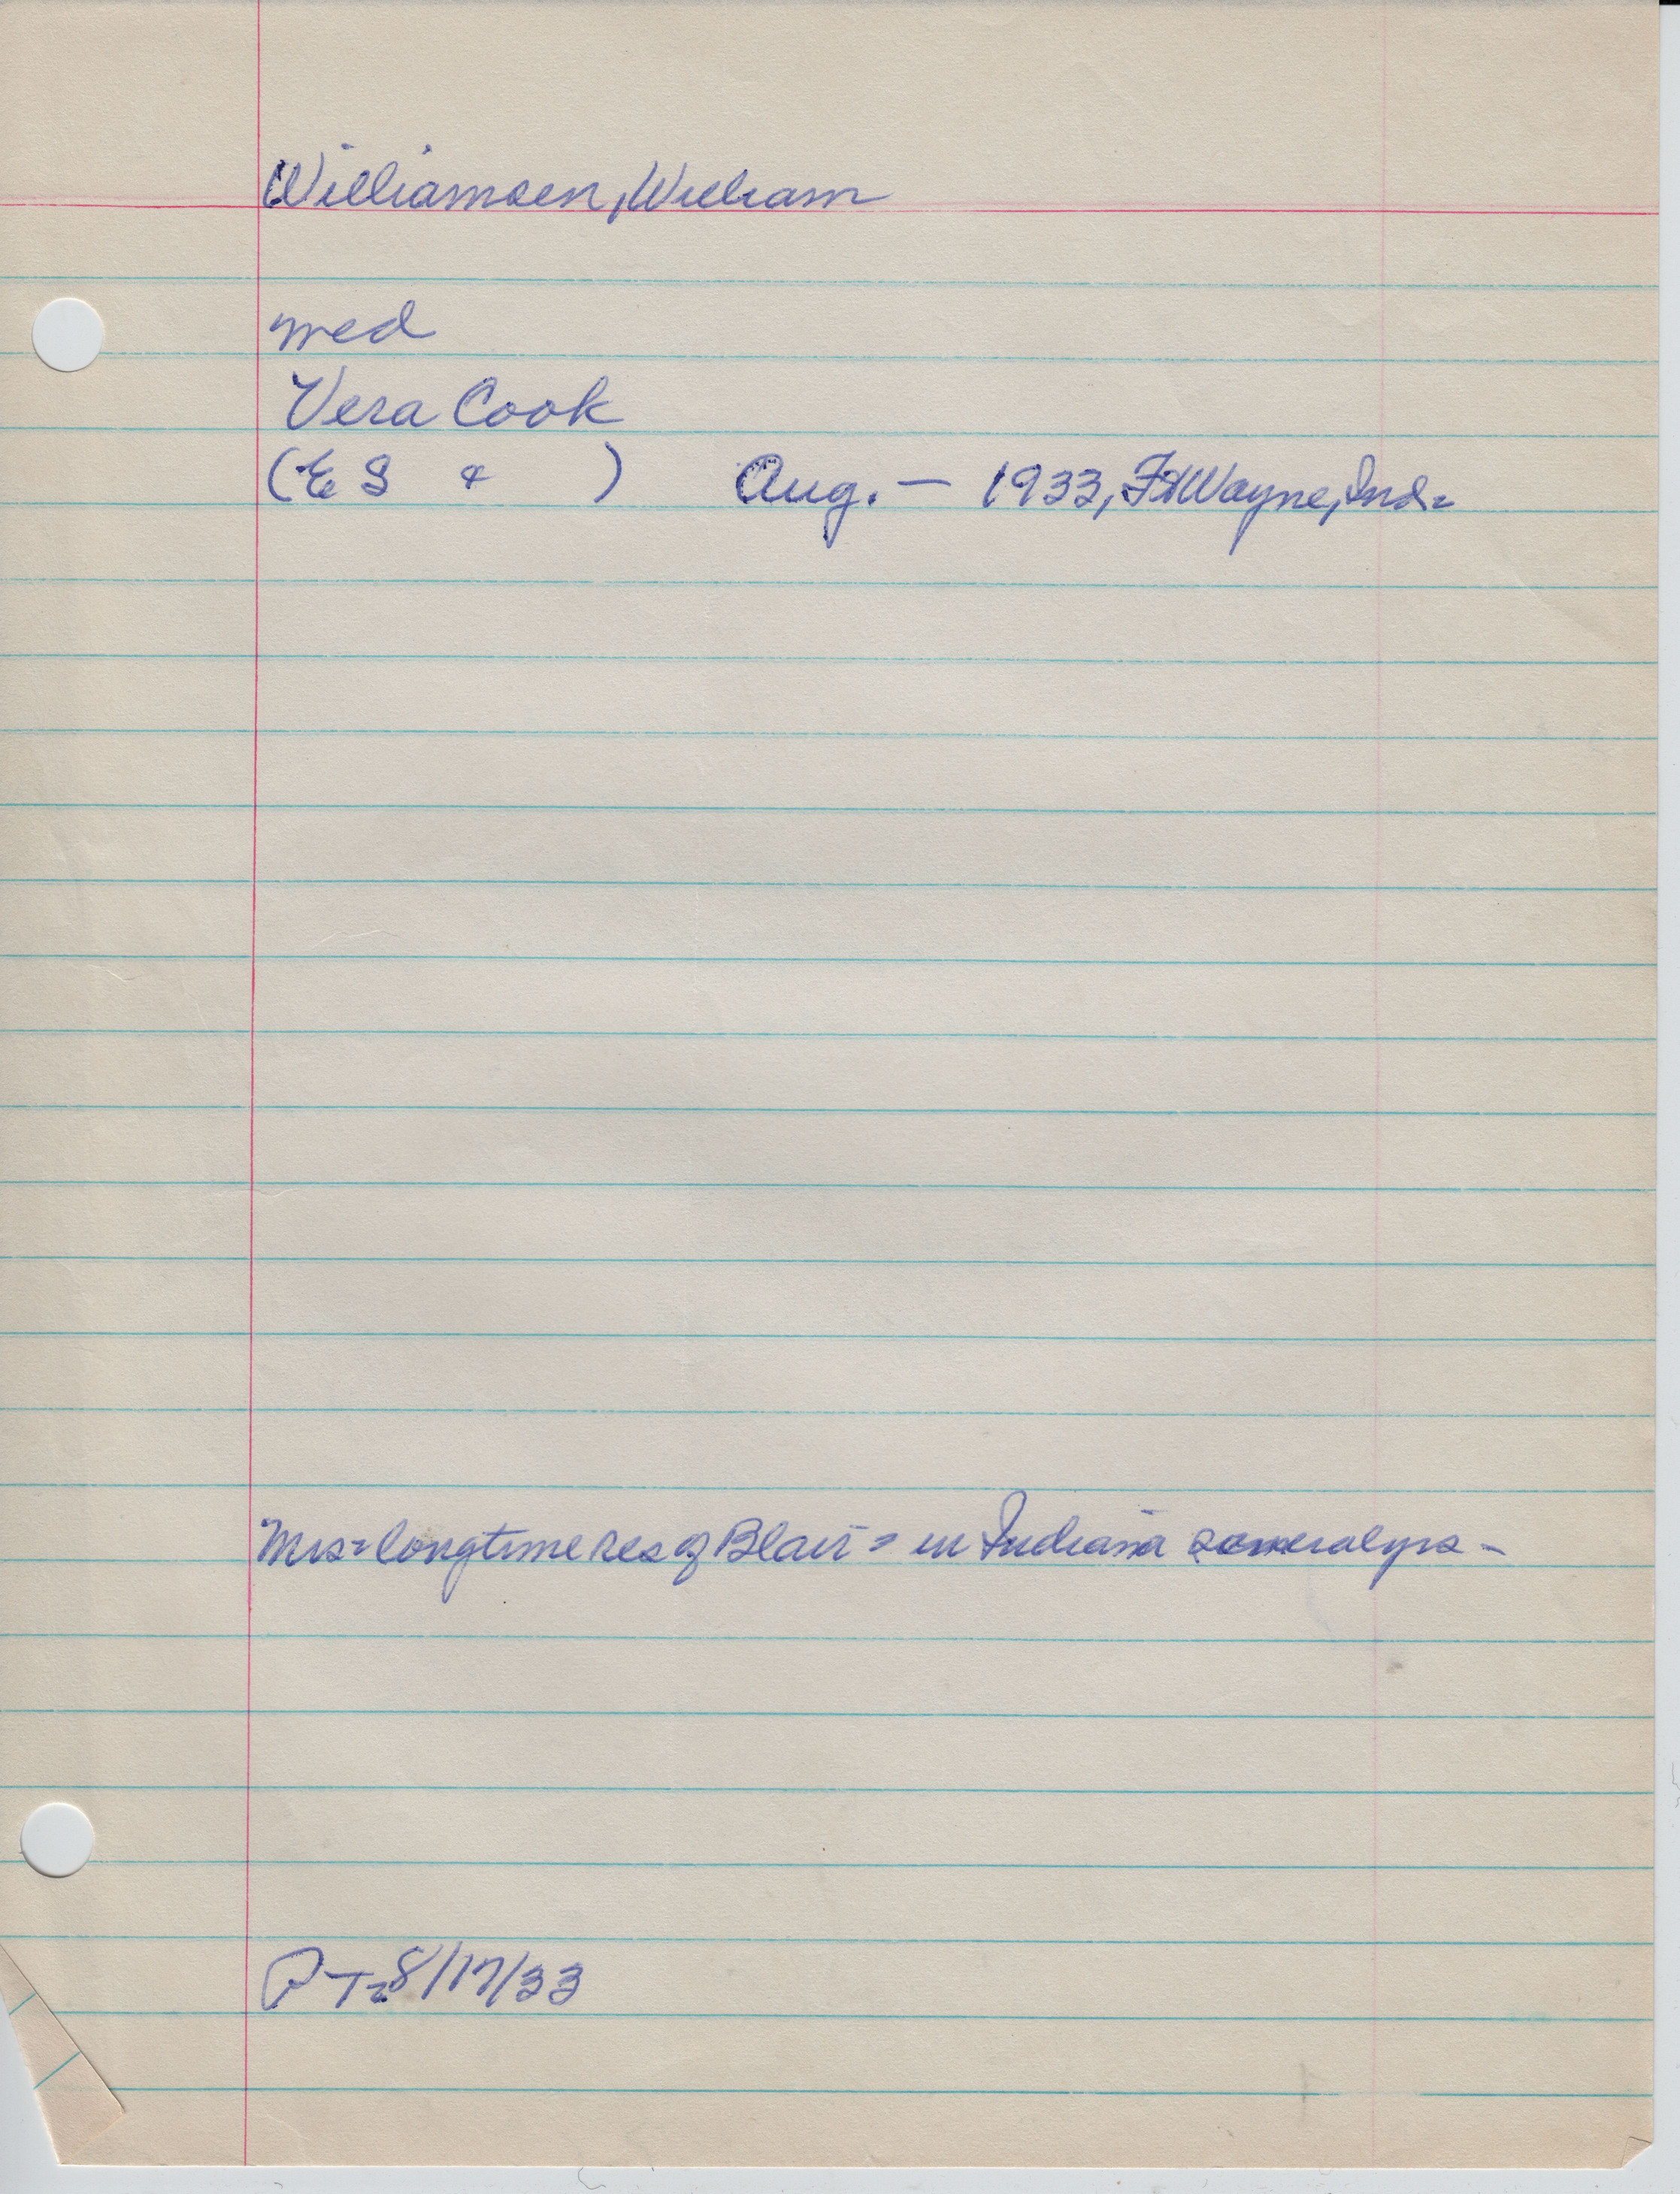 Williamsen, William
med
Vera Cook
(E S & ) Aug. — 1933, Ft Wayne, Ind.
Mrs = longtime res of Blair = in Indiana several yrs -
PT = 8/17/33